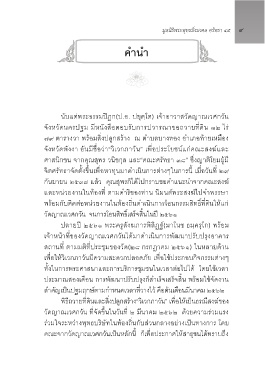 มูลนิธิพระพุทธมิ่งมงคล ศรัทธา ๔๕ ๙
คำนำ
นับแต่พระธรรมปิฎก(ป.อ. ปยุตฺโต) เจ้าอาวาสวัดญาณเวศกวัน
จังหวัดนครปฐม มีหนังสือตอบรับการปวารณาขอถวายที่ดิน ๑๒ ไร่
๗๙ ตารางวา พร้อมสิ่งปลูกสร้าง ณ ตำบลบางทอง อำเภอท้ายเหมือง
จังหวัดพังงา อันมีชื่อว่า“วิเวกภาวัน” เพื่อประโยชน์แก่คณะสงฆ์และ
ศาสนิกชน จากคุณสุพร วนิชกุล และ“คณะศรัทธา ๓๘” ซึ่งญาติโยมผู้มี
จิตศรัทธาจัดตั้งขึ้นเพื่อหาทุนมาดำเนินการต่างๆในการนี้ เมื่อวันที่ ๒๙
กันยายน ๒๕๓๘ แล้ว คุณสุพรก็ได้ไปกราบขอคำแนะนำจากคณะสงฆ์
และหน่วยงานในท้องที่ ตามดำริของท่าน นิมนต์พระสงฆ์ไปจำพรรษา
พร้อมกับติดต่อหน่วยงานในท้องถิ่นดำเนินการโอนกรรมสิทธิ์ที่ดินให้แก่
วัดญาณเวศกวัน จนการโอนสิทธิ์เสร็จสิ้นในปี ๒๕๖๑
ปลายปี ๒๕๖๑ พระครูสังฆการพิสิฏฐ์(มาโนช ธมฺมครุโก) พร้อม
เจ้าหน้าที่ของวัดญาณเวศกวันได้มาดำเนินการพัฒนาปรับปรุงอาคาร
สถานที่ ตามมติที่ประชุมของวัด(๒๘ กรกฎาคม ๒๕๖๑) ในหลายด้าน
เพื่อให้วิเวกภาวันมีความสะดวกปลอดภัย เพื่อใช้ประกอบกิจกรรมต่างๆ
ทั้งในการพระศาสนาและการบริการชุมชนในเวลาต่อไปได้ โดยใช้เวลา
ประมาณสองเดือน การพัฒนาปรับปรุงก็สำเร็จเสร็จสิ้น พร้อมใช้จัดงาน
สำคัญเป็นปฐมฤกษ์ตามกำหนดเวลาที่วางไว้ คือต้นเดือนมีนาคม ๒๕๖๒
พิธีถวายที่ดินและสิ่งปลูกสร้าง“วิเวกภาวัน” เพื่อให้เป็นธรณีสงฆ์ของ
วัดญาณเวศกวัน ที่จัดขึ้นในวันที่ ๒ มีนาคม ๒๕๖๒ ด้วยความร่วมแรง
ร่วมใจระหว่างพุทธบริษัทในท้องถิ่นกับส่วนกลางอย่างเป็นทางการ โดย
คณะจากวัดญาณเวศกวันเป็นหลักนี้ ก็เพื่อประกาศให้สาธุชนได้ทราบถึง